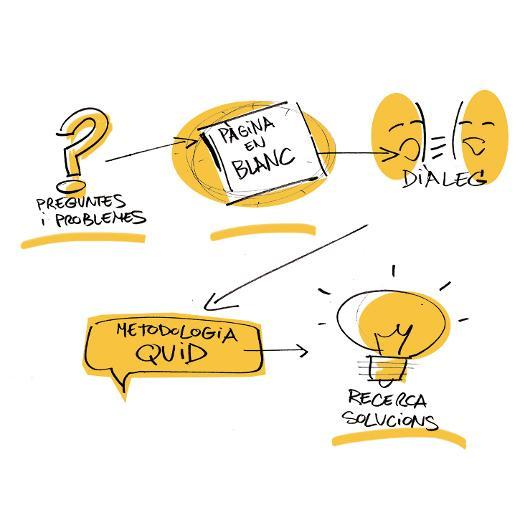 PREGUNTES
i PROBLEMES
PÀGINA
EN
BLANC
DIÀLEG
METODOLOGIA
QUID
RECERCA
SOLUCIONS